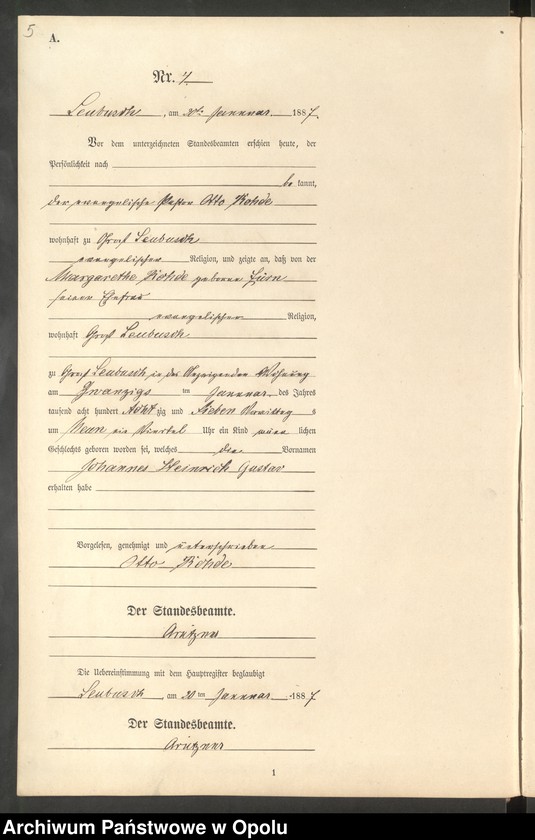 5
A.
Nr. 4.
Leubusch, am 20ten Januar 1887.
Vor dem unterzeichneten Standesbeamten erschien heute, der
Persönlichkeit nach
be kannt,
der evangelische Pastor Otto Rohde
wohnhaft zu Groß Leubusch
evangelischer Religion, und zeigte an, daß von der
Margarethe Rohde geborene
seiner Ehefrau
evangelischer Religion,
wohnhaft Groß Leubusch
zu Groß Leubusch in der Wohnung
am Zwanzigsten Januar des Jahres
tausend acht hundert Acht zig und Sieben Vormittags
um Neun ein Viertel Uhr ein Kind männlichen
Geschlechts geboren worden sei, welches die Vornamen
Johannes Heinrich Gustav
erhalten habe
Vorgelesen, genehmigt und unterschrieben
Otto Rohde
Der Standesbeamte.
Die Uebereinstimmung mit dem Hauptregister beglaubigt
Leubusch, am 20ten Januar 1887
Der Standesbeamte.
1
Archiwum Państwowe w Opolu